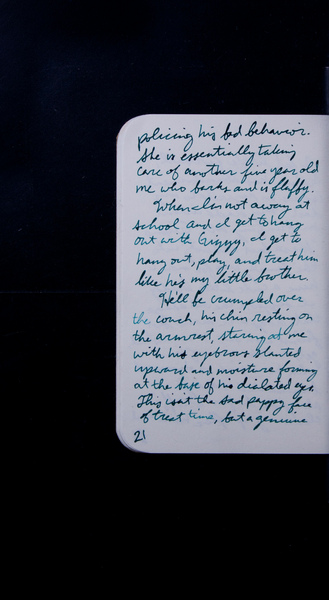 policing his bad behavior.
She is essentially taking
care of another five year old
me who barks and is fluffy.
When I'm not away at
school and I get to hang
out with Griggy, I get to
hang out, play, and treat him
like he's my little brother.
He'll be crumpled over
the couch, his chin resting on
the armrest, staring at me
with his eyebrows slanted
upward and moisture forming
at the base of his dialated eyes.
This isn't the sad puppy face
of treat time, but a genuine
21